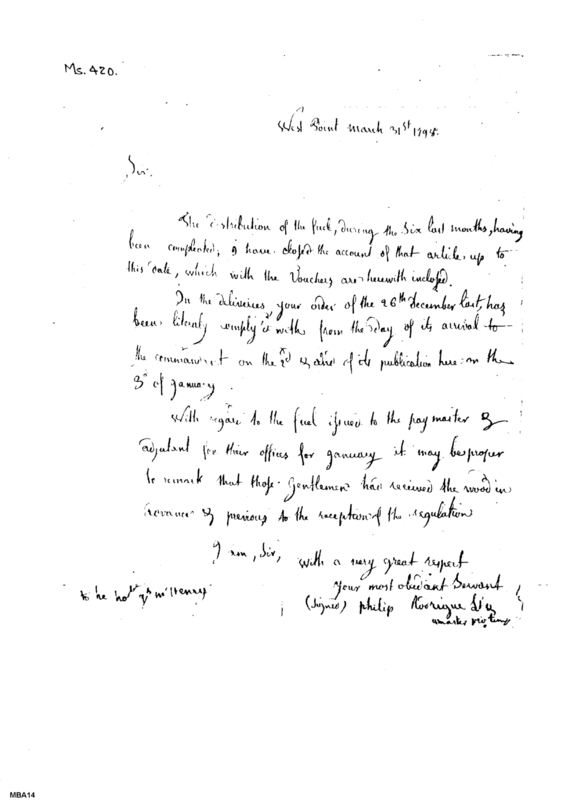 Ms. 420.
West Point march 31st 1798.
Sir.
The distribution of the fuel, during the six last months, having
been compleated, I have closed the account of that article, up to
this date, which with the Vouchers are herewith inclosed.
In the deliveries your order of the 26th december last, has
been literaly comply'd with from the day of its arrival to
the commandant on the 2d & also of its publication here on the
3d of january.
With regard to the fuel issued to the pay master &
adjutant for their offices for january it may be proper
to remark that those Gentlemen had received the wood in
advance & previous to the reception of the regulation
I am, Sir,
with a very great respect
Your most obediant Servant
to he hoble Js mcHenry
(signed) philip Rodrigue
MBA14